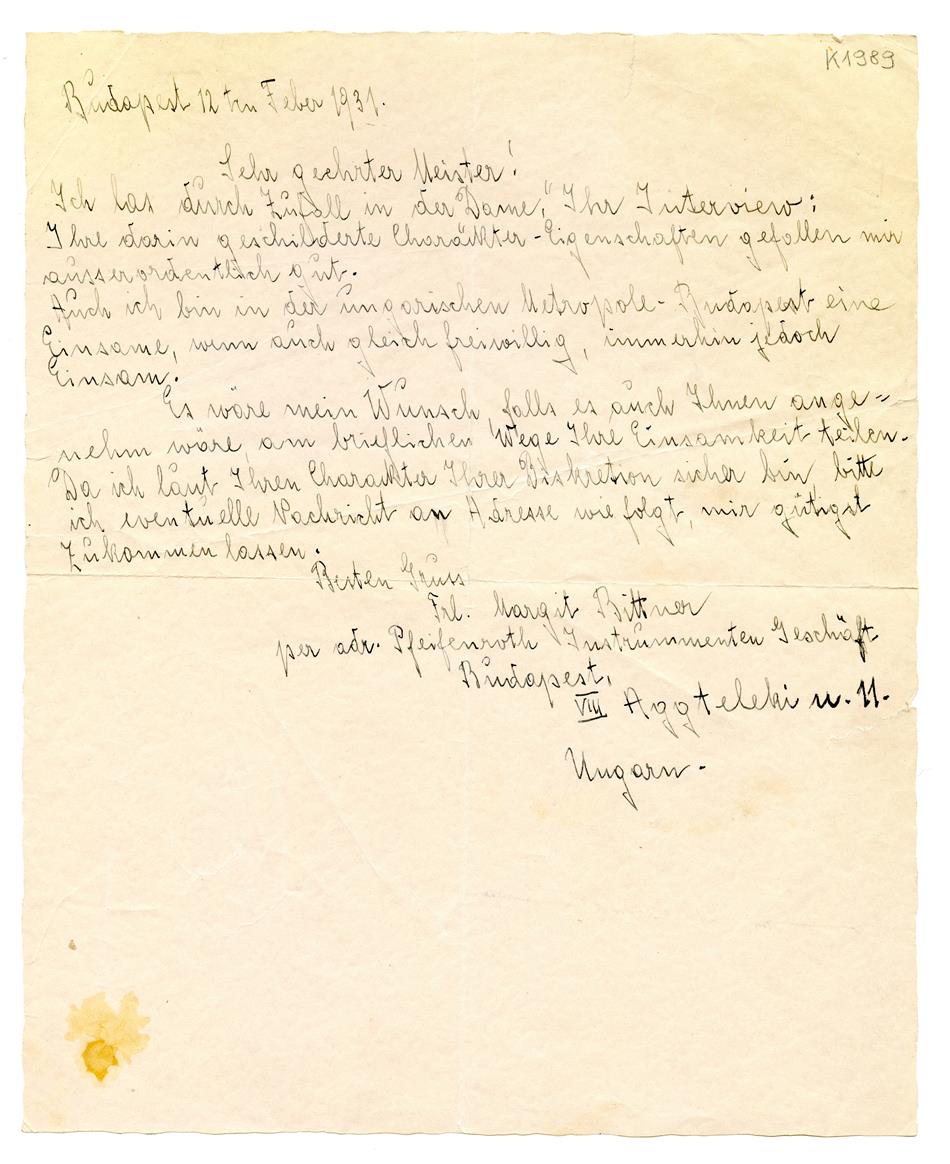 K1989
Budapest 12 ten Feber 1931.
Sehr geehrter Meister!
Ich las durch Zufall in der "Dame," Ihr Interview:
Ihre darin geschilderte Charäkter-Eigenschaften gefallen mir
ausserordentlich gut.
Auch ich bin in der ungarischen Metropole - Budapest eine
Einsame, wenn auch gleich freiwillig, immerhin jedoch
Einsam.
Es wäre mein Wunsch, falls es auch Ihnen ange=
nehm wäre, am brieflichen Wege Ihre Einsamkeit teilen.
Da ich laut Ihren Charakter Ihrer Diskretion sicher bin, bitte
ich eventuelle Nachricht an Adresse wie folgt, mir gütigst
zukommen lassen.
Besten Gruss
Frl. Margit Bittner
per adr. Pfeifenroth Instrummenten Geschäft
Budapest,
VIII Aggteleki u. 11.
Ungarn.